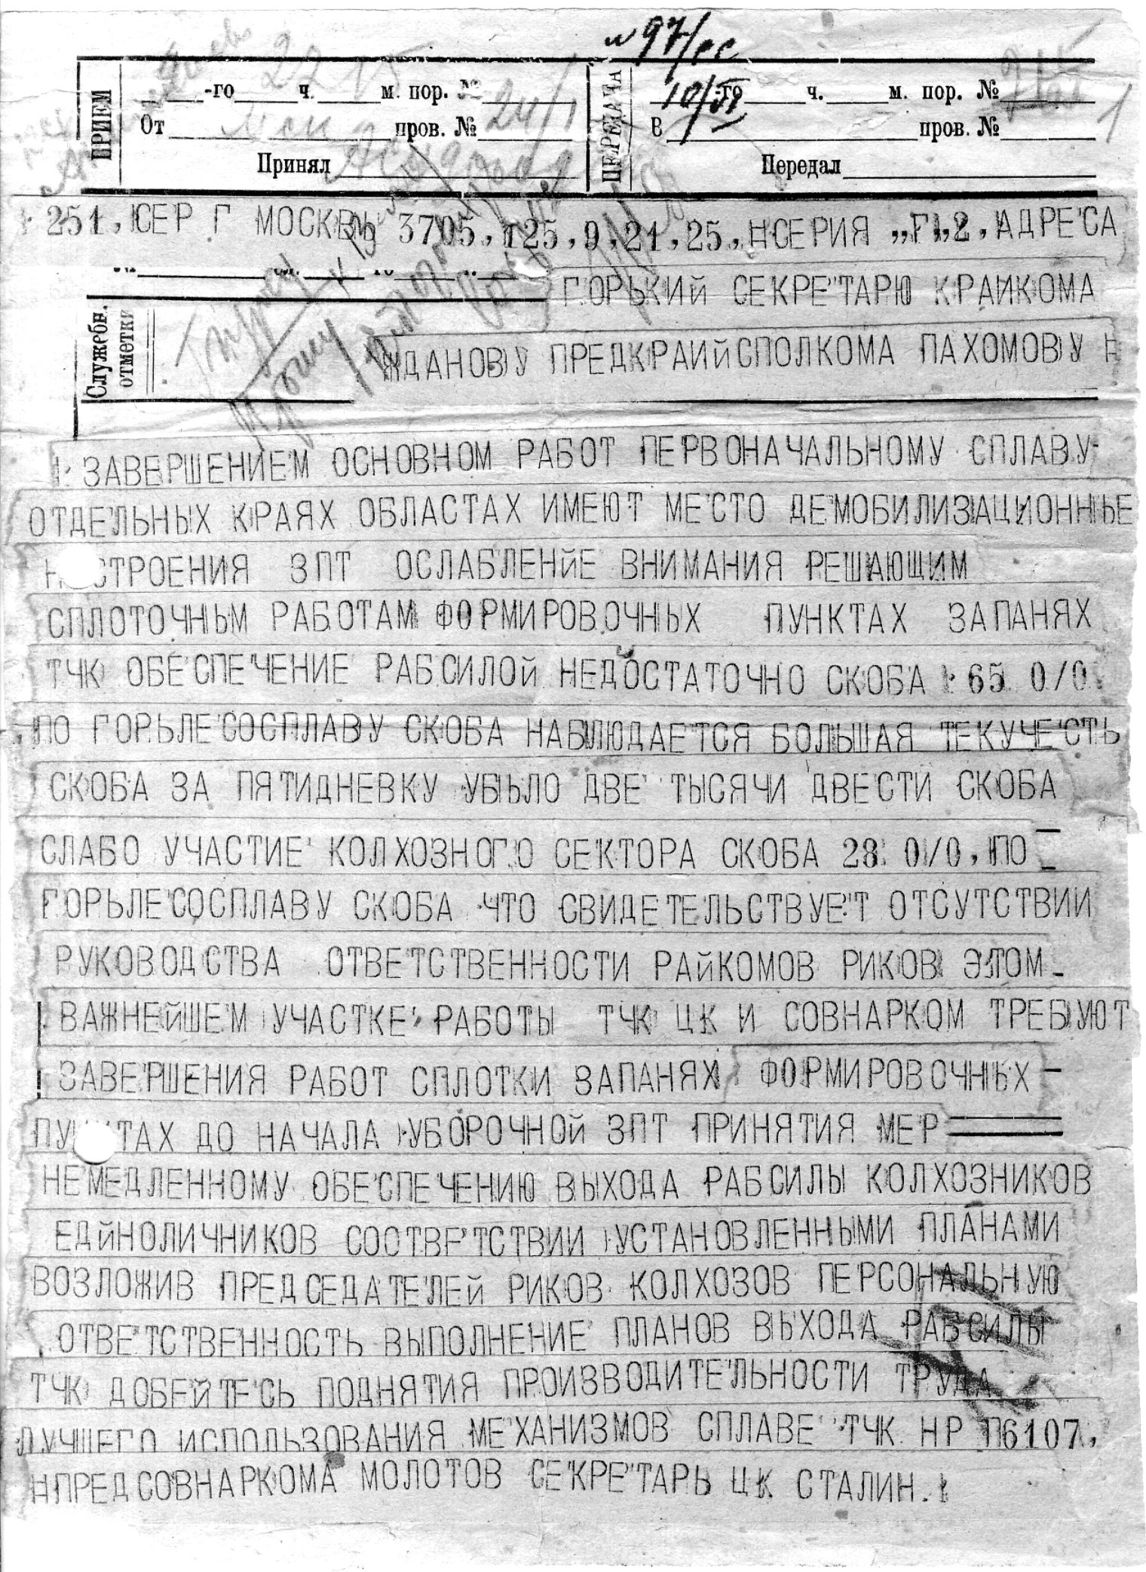 №97/сс
ПРИЕМ
-го ч. м. пор. №
От пров. № 24/1
Принял
ПЕРЕДАЧА
10/VI -го ч. м. пор. №
В пров. №
Передал
1
251, СЕР Г МОСКВЫ 3705, 125, 9, 21, 25, НСЕРИЯ „Г1,2, АДРЕСА
ГОРЬКИЙ СЕКРЕТАРЮ КРАИКОМА
Служебн. отметки
ЖДАНОВУ ПРЕДКРАИЙСПОЛКОМА ПАХОМОВУ Н
ЗАВЕРШЕНИЕМ ОСНОВНОМ РАБОТ ПЕРВОНАЧАЛЬНОМУ СПЛАВУ
ОТДЕЛЬНЫХ КРАЯХ ОБЛАСТАХ ИМЕЮТ МЕСТО ДЕМОБИЛИЗАЦИОННЫЕ
Н СТРОЕНИЯ ЗПТ ОСЛАБЛЕНЙЕ ВНИМАНИЯ РЕШАЮЩИМ
СПЛОТОЧНЫМ РАБОТАМ ФОРМИРОВОЧНЫХ ПУНКТАХ ЗАПАНЯХ
ТЧК ОБЕСПЕЧЕНИЕ РАБСИЛОЙ НЕДОСТАТОЧНО СКОБА 65 0/0
ПО ГОРЬЛЕСОСПЛАВУ СКОБА НАБЛЮДАЕТСЯ БОЛЬШАЯ ТЕКУЧЕСТЬ
СКОБА ЗА ПЯТИДНЕВКУ УБЫЛО ДВЕ ТЫСЯЧИ ДВЕСТИ СКОБА
СЛАБО УЧАСТИЕ КОЛХОЗНОГО СЕКТОРА СКОБА 28 0/0, ПО
ГОРЬЛЕСОСПЛАВУ СКОБА ЧТО СВИДЕТЕЛЬСТВУЕТ ОТСУТСТВИИ
РУКОВОДСТВА ОТВЕТСТВЕННОСТИ РАЙКОМОВ РИКОВ ЭТОМ
ВАЖНЕЙШЕМ УЧАСТКЕ РАБОТЫ ТЧК ЦК И СОВНАРКОМ ТРЕБУЮТ
ЗАВЕРШЕНИЯ РАБОТ СПЛОТКИ ЗАПАНЯХ ФОРМИРОВОЧНЫХ
ПУ ТАХ ДО НАЧАЛА УБОРОЧНОЙ ЗПТ ПРИНЯТИЯ МЕР
НЕМЕДЛЕННОМУ ОБЕСПЕЧЕНИЮ ВЫХОДА РАБСИЛЫ КОЛХОЗНИКОВ
ЕДЙНОЛИЧНИКОВ СООТВЕТСТВИИ УСТАНОВЛЕННЫМИ ПЛАНАМИ
ВОЗЛОЖИВ ПРЕДСЕДАТЕЛЕЙ РИКОВ КОЛХОЗОВ ПЕРСОНАЛЬНУЮ
ОТВЕТСТВЕННОСТЬ ВЫПОЛНЕНИЕ ПЛАНОВ ВЫХОДА РАБСИЛЫ
ТЧК ДОБЕЙТЕСЬ ПОДНЯТИЯ ПРОИЗВОДИТЕЛЬНОСТИ ТРУДА
ЛУЧШЕГО ИСПОЛЬЗОВАНИЯ МЕХАНИЗМОВ СПЛАВЕ ТЧК НР П6107,
НПРЕДСОВНАРКОМА МОЛОТОВ СЕКРЕТАРЬ ЦК СТАЛИН.